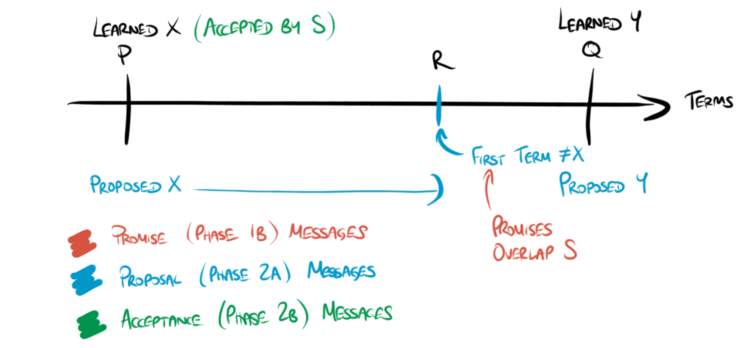 LEARNED X (ACCEPTED BY S)
P
LEARNED Y
Q
R
TERMS
FIRST TERM ≠X
PROPOSED X
PROPOSED Y
PROMISES
OVERLAP S
PROMISE (PHASE 1B) MESSAGES
PROPOSAL (PHASE 2A) MESSAGES
ACCEPTANCE (PHASE 2B) MESSAGES